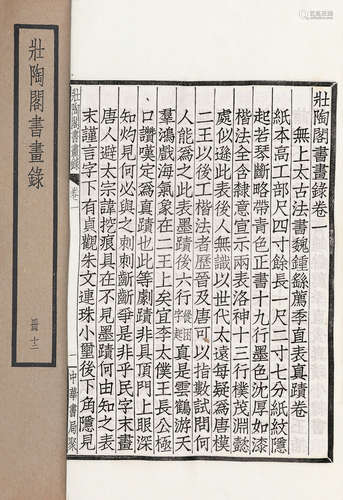 壯陶閣書畫錄卷一
無上太古法書魏鍾繇薦季直表真蹟卷
紙本高工部尺四寸餘長一尺二寸七分紙紋隱
起若琴斷略帶青色正書十九行墨色沈厚如漆
楷法全含隸意宣示兩表洛神十三行樸茂淵懿
處似遜此表後人無識以世代太遠每疑為唐模
二王以後工楷法者歷晉及唐可以指數試問何
人能為之此表墨蹟後六行真是雲鶴游天
羣鴻戲海氣象在二王上矣宜李太僕王長公極
口讚嘆定為真蹟也此等劇蹟非具頂門上眼深
知灼見何必與之刺刺斷斷爭是非乎民字末畫
唐人避太宗諱挖痕具在不見墨蹟何由知之表
末謹言字下有貞觀朱文連珠小璽後下角隱見
壯陶閣書畫錄 卷一
一 中華書局聚
壯陶閣書畫錄
冊 十二